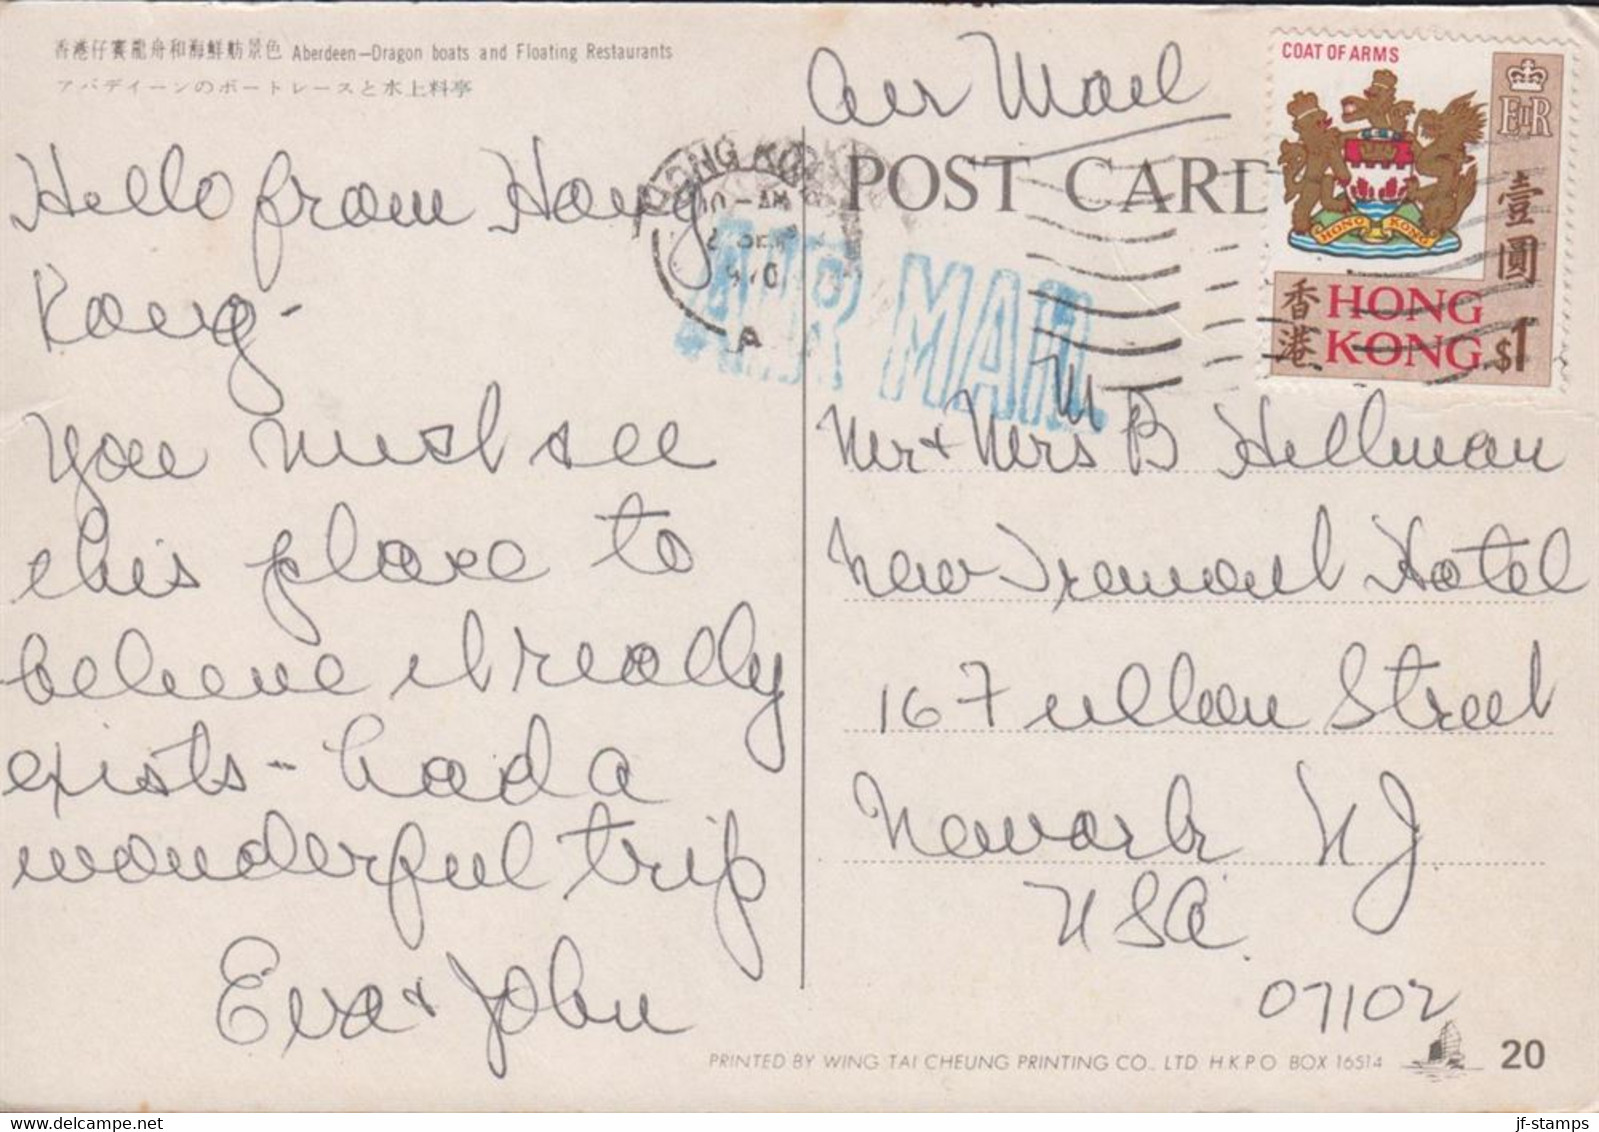 香港仔賽龍舟和海鮮舫景色 Aberdeen—Dragon boats and Floating Restaurants
アバディーンのボートレースと水上料亭
Hello from Hong
Kong -
You must see
this place to
believe it really
exists - had a
wonderful trip
Eva & John
Air Mail
POST CARD
HONG KONG
10 - AM
2 SEP
970
A
AIR MAIL
COAT OF ARMS
EIIR
壹圓
HONG KONG
香港 HONG KONG $1
Mr + Mrs B Hellman
New Tremont Hotel
167 Street
Newark NJ
USA
07102
PRINTED BY WING TAI CHEUNG PRINTING CO., LTD H.K.P.O. BOX 16514
20
jf-stamps